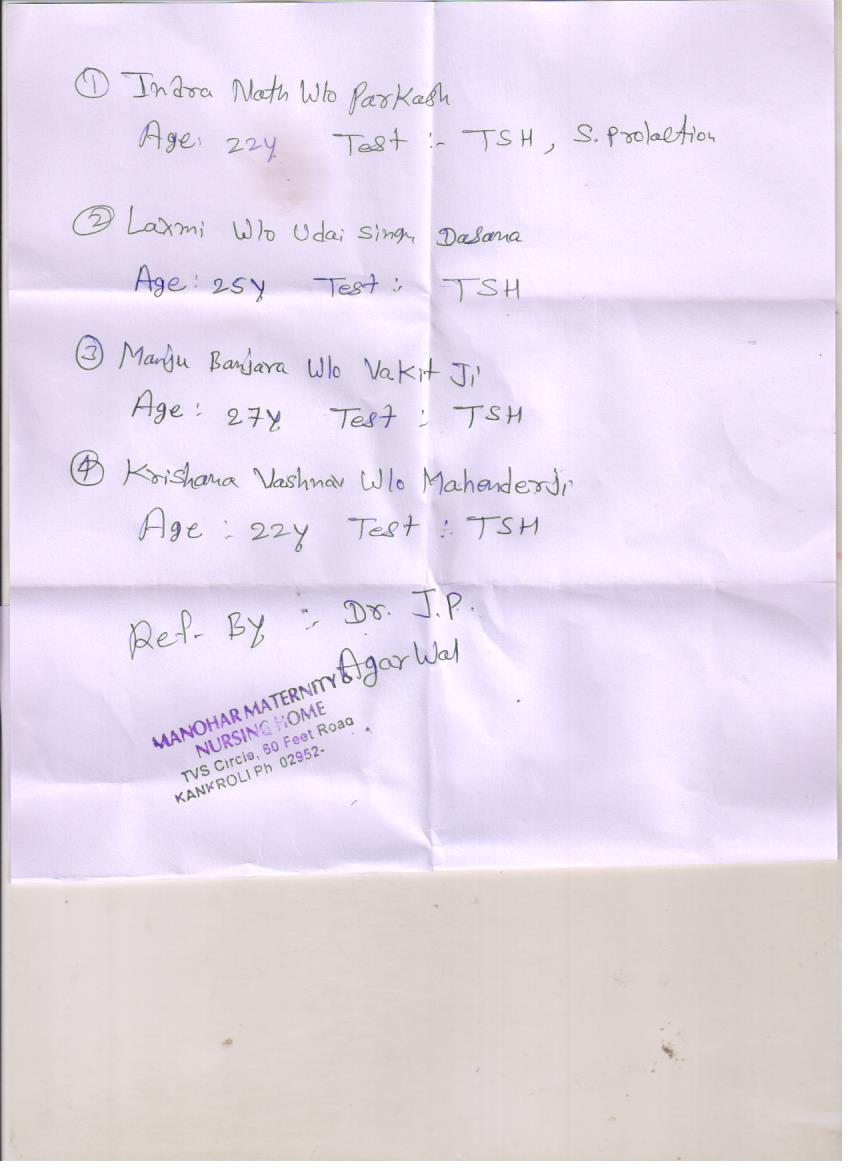 ① Indra Nath W/o Parkash
Age: 22y Test :- TSH, S. Prolaction
② Laxmi W/o Udai Singh Dasana
Age: 25y Test :- TSH
③ Manju Banjara W/o Vakit Ji
Age: 27y Test :- TSH
④ Krishana Vashnav W/o Mahenderji
Age :- 22y Test :- TSH
Ref- By :- Dr. J.P.
Agarwal
MANOHAR MATERNITY &
NURSING HOME
TVS Circle, 60 Feet Road
KANKROLI Ph 02952-